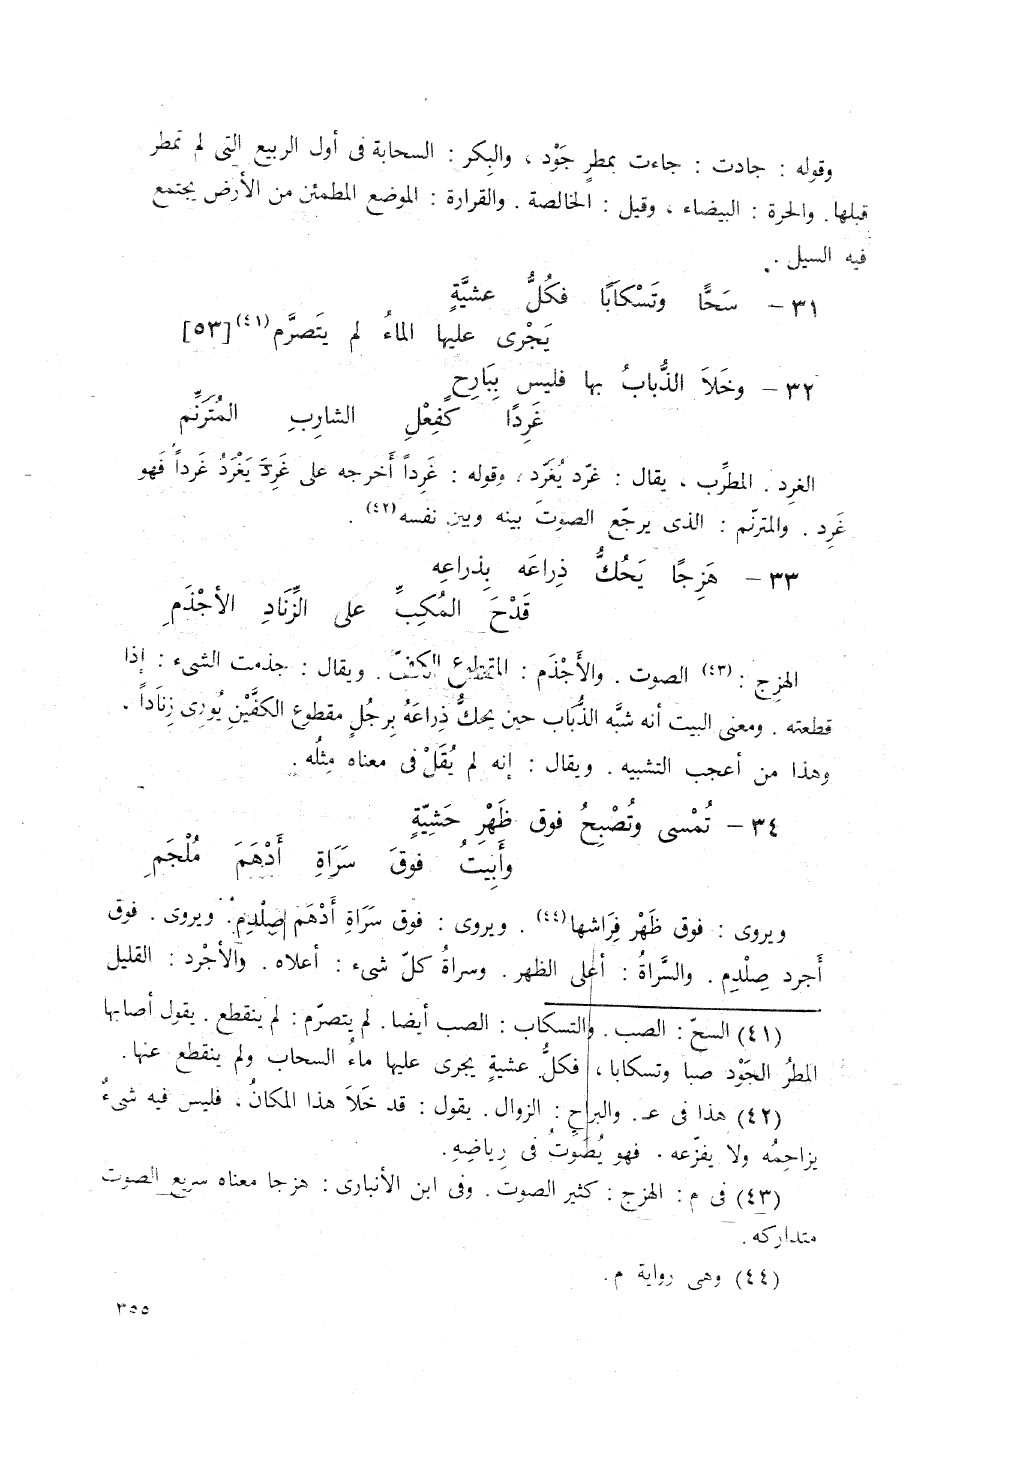 وقوله : جادت : جاءت بمطرٍ جَوْد ، والبِكر : السحابة فى أول الربيع التى لم تمطر
قبلها. والحرة : البيضاء ، وقيل : الخالصة . والقرارة : الموضع المطمئن من الأرض يجتمع
فيه السيل .
٣١ – سَحًّا وتَسْكابًا فكُلُّ عشيَّةٍ
يَجْرى عليها الماءُ لم يتَصرَّم(٤١) [٥٣]
٣٢ – وخَلاَ الذُّبابُ بها فليس بِبَارِحٍ
غَرِدًا كفِعْلِ الشارِبِ المُتَرَنِّم
الغرِد . المطرِّب ، يقال : غرّد يُغَرّد ، وقوله : غَرِداً أخرجه على غَرِدَ يَغْرَدُ غَرداً فَهو
غَرِد . والمترنّم : الذى يرجّع الصوتَ بينه وبين نفسه(٤٢) .
٣٣ – هَزِجًا يَحُكُّ ذِراعَه بِذراعِه
قَدْحَ المُكِبِّ على الزِّنَادِ الأجْذَمِ
الهزِج :(٤٣) الصوت . والأَجْذَم : المقطوع الكفّ . ويقال : جذمت الشىء : إذا
قطعته . ومعنى البيت أنه شبَّه الذُّبَاب حين يحكُّ ذِراعَهُ بِرجُلٍ مقطوع الكفَّيْنِ يُورِى زِنَاداً .
وهذا من أعجب التشبيه . ويقال : إنه لم يُقَلْ فى معناه مِثلُه .
٣٤ – تُمْسى وتُصْبِحُ فوق ظَهْرِ حَشِيّةٍ
وأَبِيتُ فوقَ سَرَاةِ أَدْهَمَ مُلْجَمِ
ويروى : فوق ظَهْر فِرَاشها(٤٤) . ويروى : فوق سَرَاةِ أَدْهَم صِلْدِم. ويروى . فوق
أَجرد صِلْدِم . والسَّراةُ : أعلى الظهر . وسراةُ كلّ شىء : أعلاه . والأجْرد : القليل
(٤١) السحّ : الصب . والتسكاب : الصب أيضا. لم يتصرّم : لم ينقطع . يقول أصابها
المطرُ الجَوْد صبا وتسكابا ، فكلُّ عشيةٍ يجرى عليها ماءُ السحاب ولم ينقطع عنها.
(٤٢) هذا فى عـ. والبراح : الزوال. يقول : قد خَلاَ هذا المكانُ ، فليس فيه شىءٌ
يزاحِمُه ولا يفزّعه . فهو يُصَوتُ فى رِياضِهِ.
(٤٣) فى م : الهزج : كثير الصوت . وفى ابن الأنبارى : هزجا معناه سريع الصوت
متداركه .
(٤٤) وهى رواية م .
٣٥٥